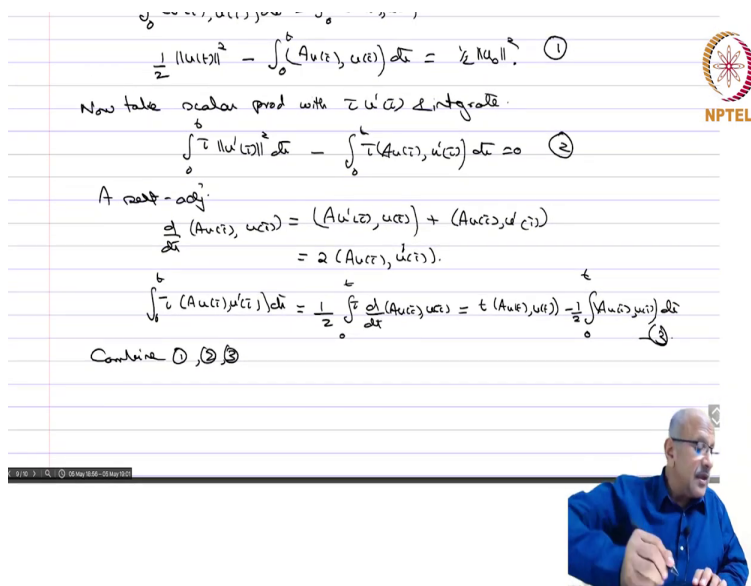 ½ ||u(t)||² − ∫₀ᵗ (Au(τ), u(τ)) dτ = ½ ||u₀||². ①
NPTEL
Now take scalar prod with τ u'(τ) & integrate.
∫₀ᵗ τ ||u'(τ)||² dτ − ∫₀ᵗ τ(Au(τ), u'(τ)) dτ = 0 ②
A self-adj.
d/dτ (Au(τ), u(τ)) = (Au'(τ), u(τ)) + (Au(τ), u'(τ))
= 2 (Au(τ), u'(τ)).
∫₀ᵗ τ (Au(τ), u'(τ)) dτ = 1/2 ∫₀ᵗ τ d/dτ (Au(τ), u(τ)) = t (Au(t), u(t)) − 1/2 ∫₀ᵗ (Au(τ), u(τ)) dτ
—③.
Combine ①, ②, ③
9/10 05 May 18:56 - 05 May 19:01